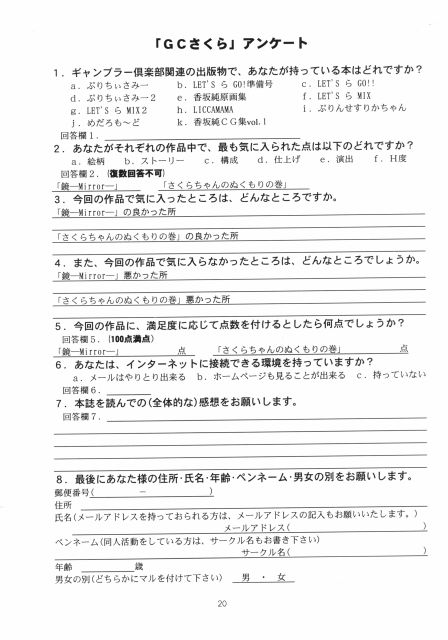 「ＧＣさくら」アンケート
１．ギャンブラー倶楽部関連の出版物で、あなたが持っている本はどれですか？
a．ぷりちぃさみー　b．LET'S ら GO!準備号　c．LET'S ら GO!!
d．ぷりちぃさみー２　e．香坂純原画集　f．LET'S ら MIX
g．LET'S ら MIX２　h．LICCAMAMA　i．ぷりんせすりかちゃん
j．めだろも～ど　k．香坂純ＣＧ集vol.1
回答欄１．
２．あなたがそれぞれの作品中で、最も気に入られた点は以下のどれですか？
a．絵柄　b．ストーリー　c．構成　d．仕上げ　e．演出　f．Ｈ度
回答欄２．(複数回答不可)
「鏡―Mirror―」　「さくらちゃんのぬくもりの巻」
３．今回の作品で気に入ったところは、どんなところですか。
「鏡―Mirror―」の良かった所
「さくらちゃんのぬくもりの巻」の良かった所
４．また、今回の作品で気に入らなかったところは、どんなところでしょうか。
「鏡―Mirror―」悪かった所
「さくらちゃんのぬくもりの巻」悪かった所
５．今回の作品に、満足度に応じて点数を付けるとしたら何点でしょうか？
回答欄５．(100点満点)
「鏡―Mirror―」　点　「さくらちゃんのぬくもりの巻」　点
６．あなたは、インターネットに接続できる環境を持っていますか？
a．メールはやりとり出来る　b．ホームページも見ることが出来る　c．持っていない
回答欄６．
７．本誌を読んでの(全体的な)感想をお願いします。
回答欄７．
８．最後にあなた様の住所・氏名・年齢・ペンネーム・男女の別をお願いします。
郵便番号(　－　)
住所
氏名(メールアドレスを持っておられる方は、メールアドレスの記入もお願いいたします。)
メールアドレス(　)
ペンネーム(同人活動をしている方は、サークル名もお書き下さい)
サークル名(　)
年齢　歳
男女の別(どちらかにマルを付けて下さい)　男　・　女
20